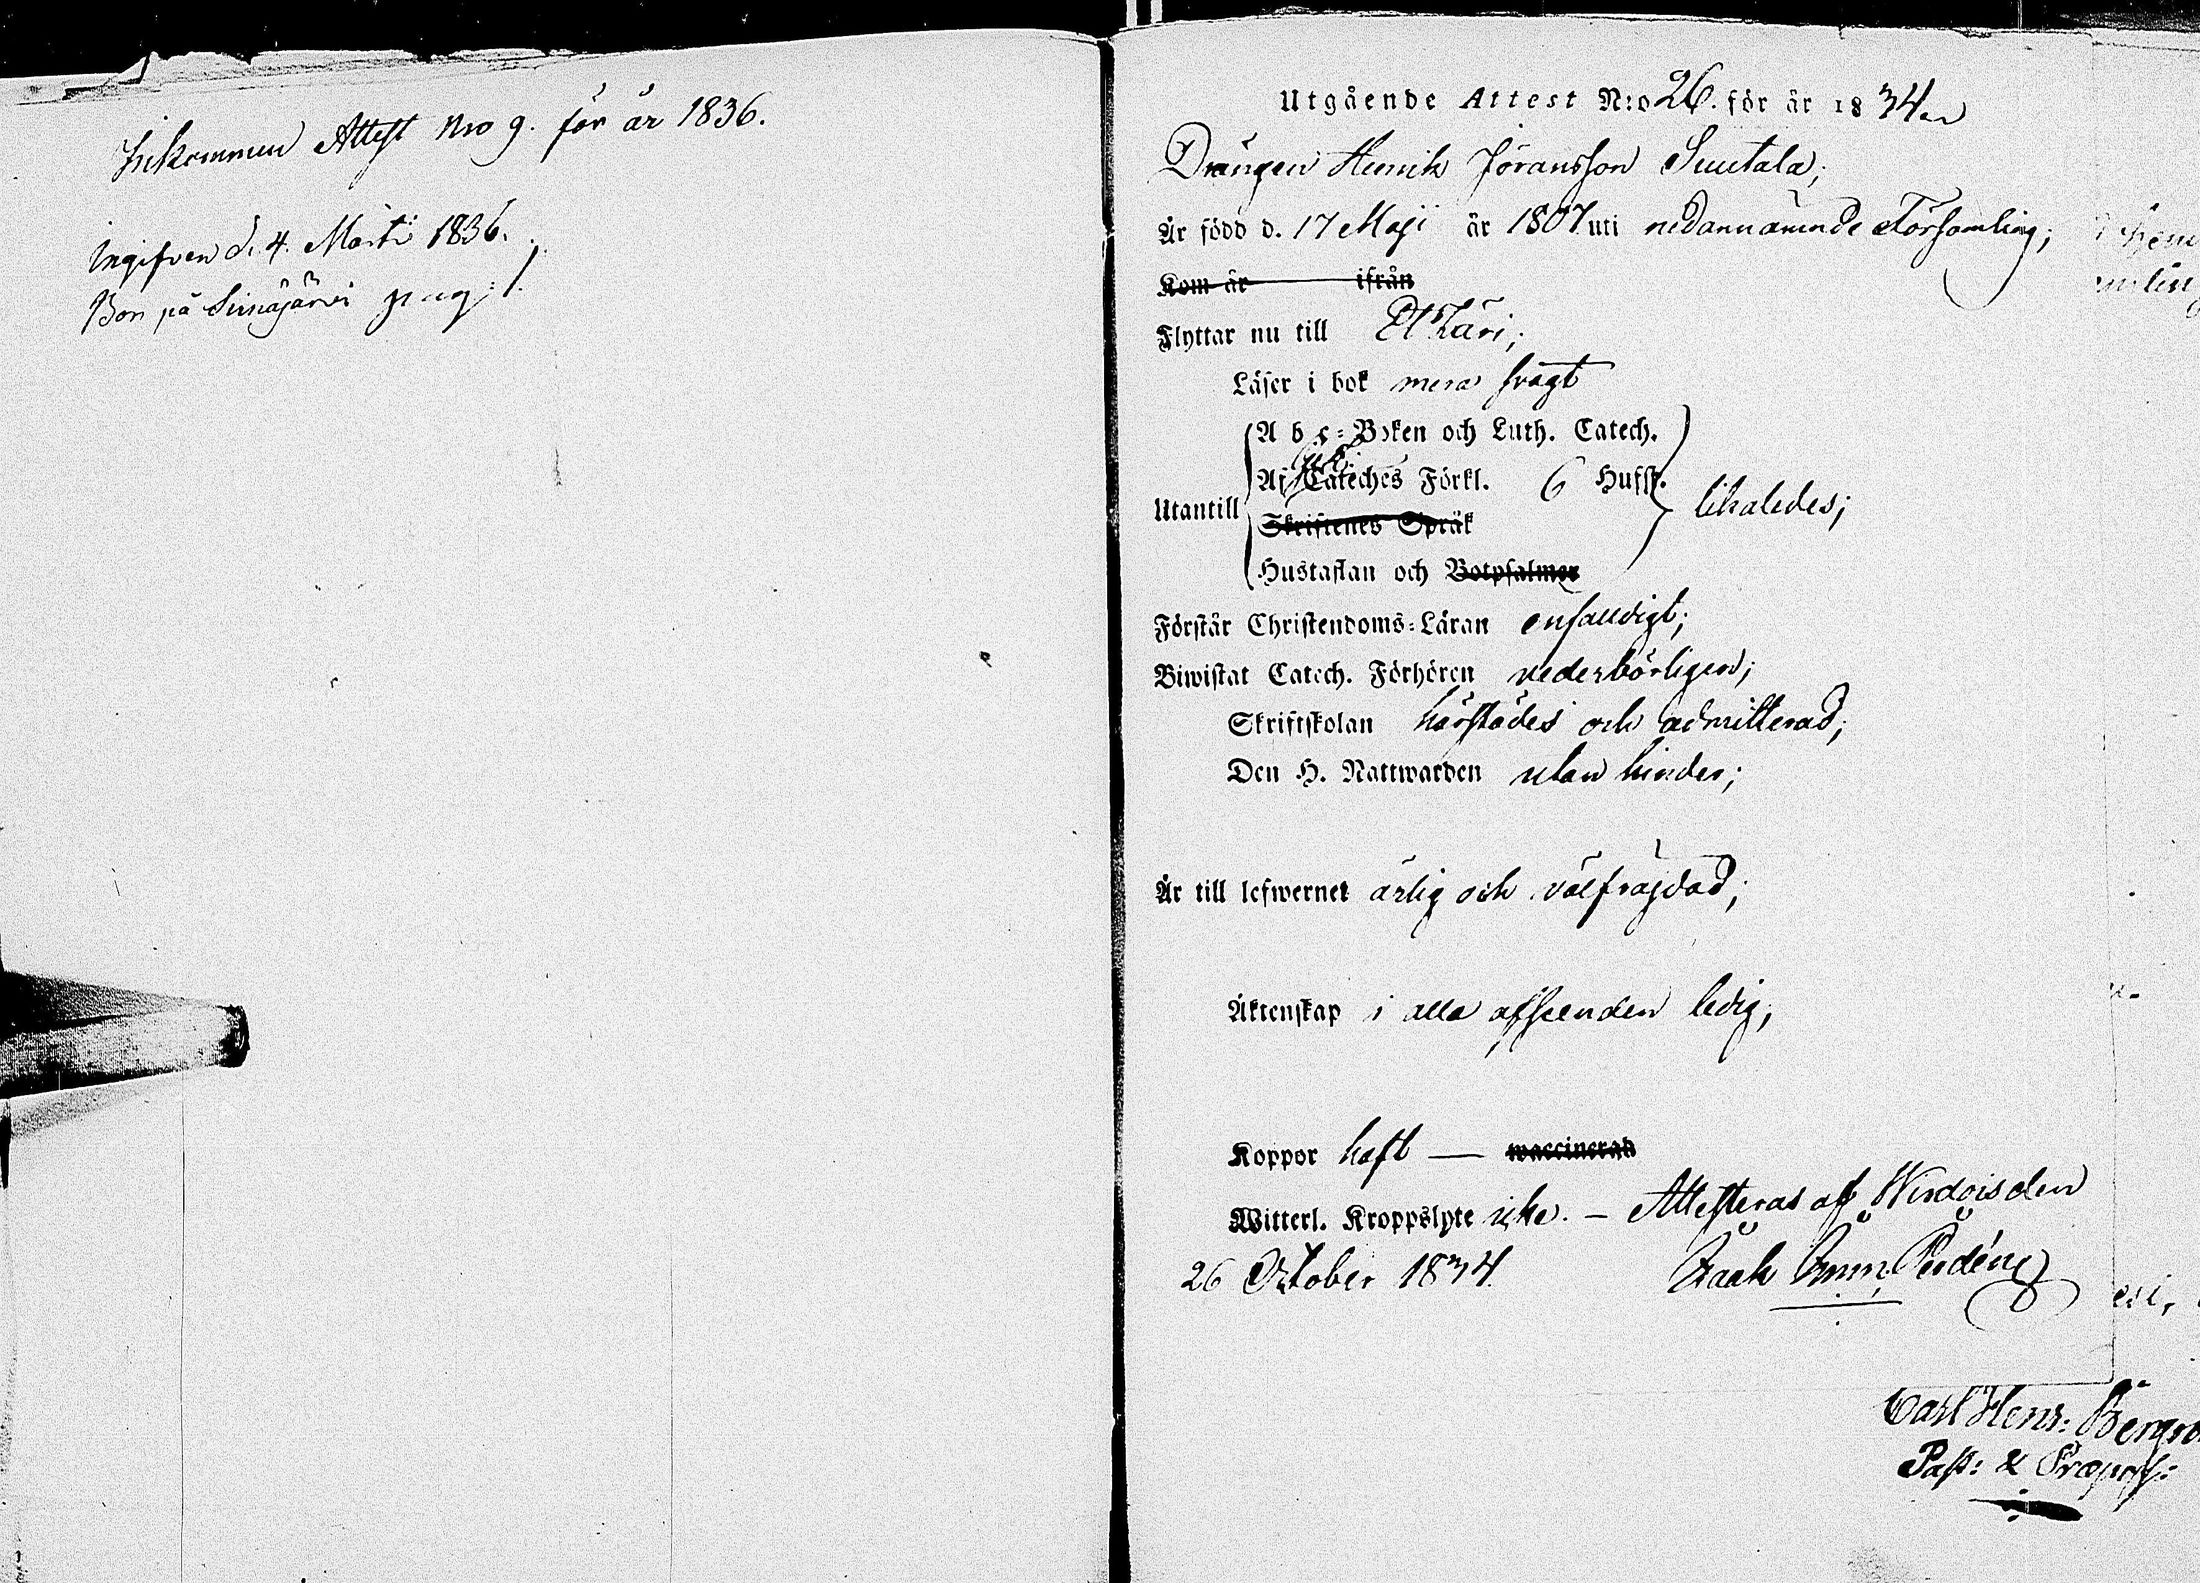 Inkommen Attest Nro 9. för år 1836.
Ingifven d. 4. Marti 1836.
Bor på pag: 1.
Utgående Attest N:o 26. för år 1834
Drängen Henrik Jöransson Suutala;
Är född d. 17 Maji år 1807 uti nedannämnde Församling;
Kom år ifrån
Flyttar nu till Etzäri;
Läser i bok mera svagt
A b c-Boken och Luth. Catech.
Af Cateches Förkl. 6 Hufst.
Utantill likaledes;
Skriftenes Språk
Hustaflan och Botpsalmer
Förstår Christendoms-Läran enfaldigt;
Biwistat Catech. Förhören vederbörligen;
Skriftskolan härstädes och admitterad;
Den H. Nattwarden utan hinder;
Är till lefwernet ärlig och välfräjdad;
Äktenskap i alla afseenden ledig;
Koppor haft — waccinerad
Witterl. Kroppslyte icke. — Attesteras af Wirdois den
26 October 1834.
Carl Henr:
Past: & Præpos: